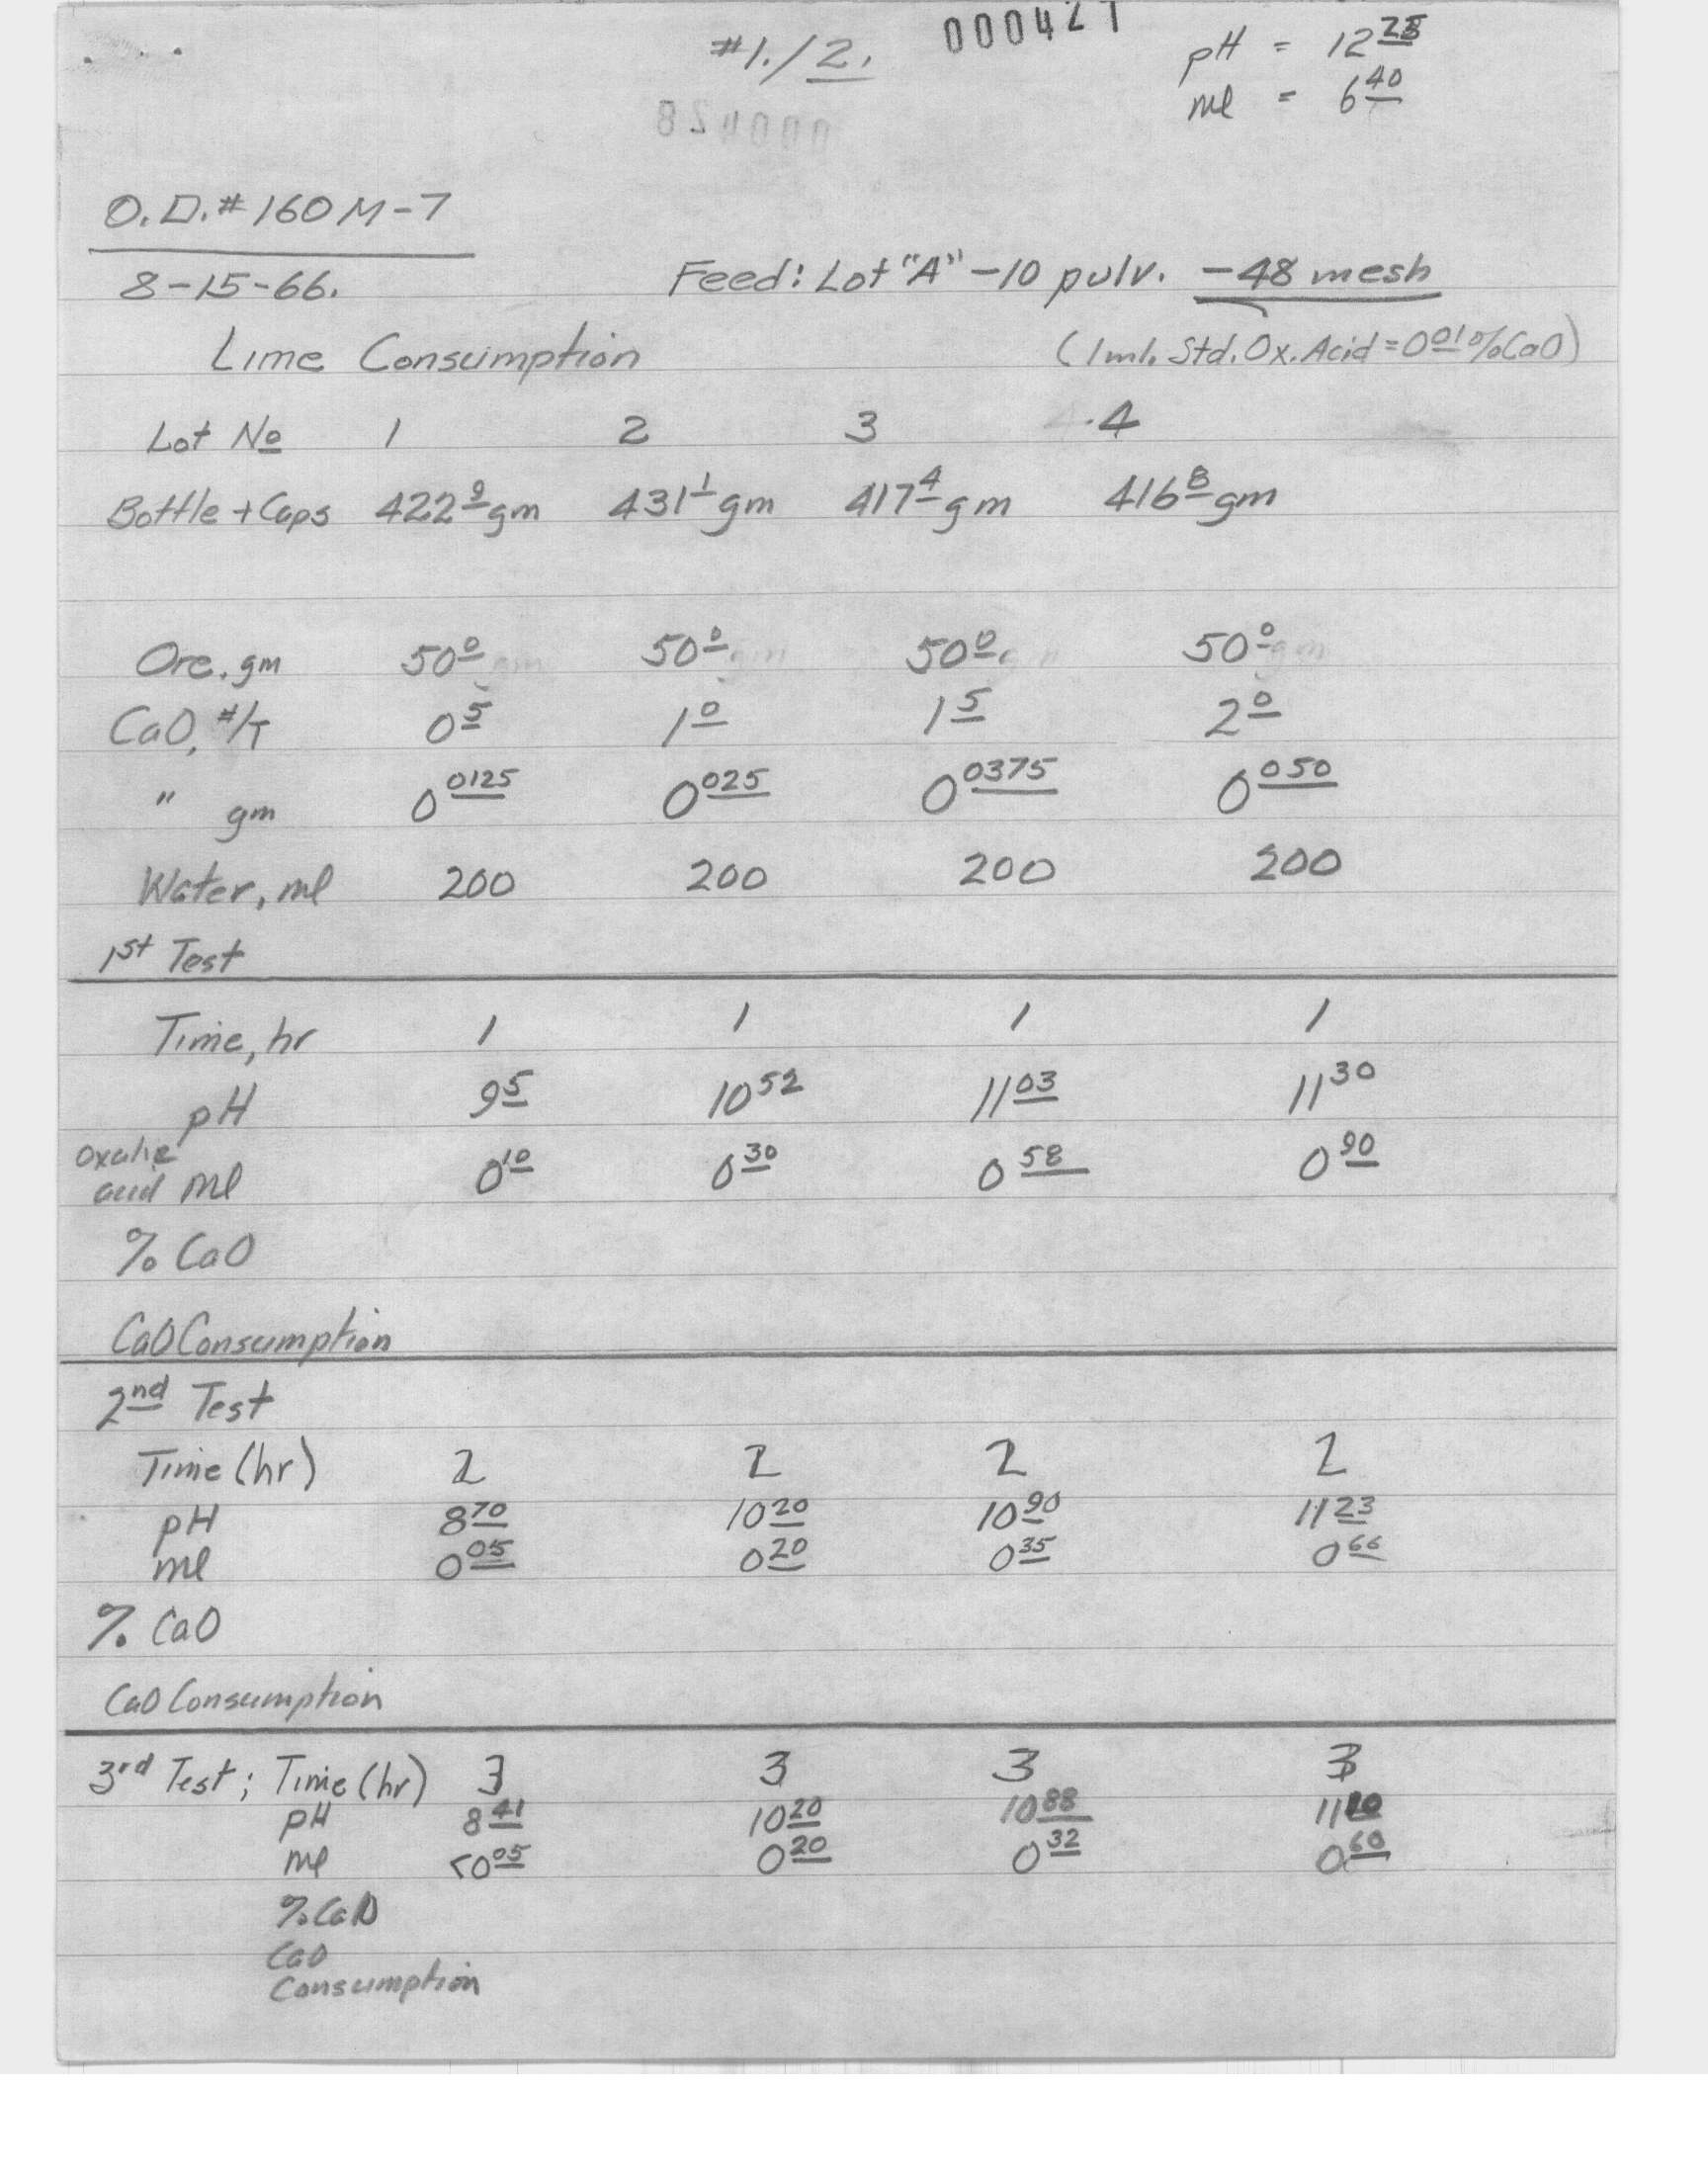 #1./2. 000427
pH = 12 28
ml = 6 40
O.D.# 160 M-7
8-15-66.
Feed: Lot "A" -10 pulv. -48 mesh
Lime Consumption (1ml. Std. Ox. Acid = 0 01 % CaO)
Lot No 1 2 3 4
Bottle + Caps 422 9 gm 431 1 gm 417 4 gm 416 8 gm
Ore. gm 50 0 50 0 50 0 50 0
CaO, #/T 0 5 1 0 1 5 2 0
" gm 0 0125 0 025 0 0375 0 050
Water, ml 200 200 200 200
1st Test
Time, hr 1 1 1 1
pH 9 5 10 52 11 03 11 30
Oxalic acid ml 0 10 0 30 0 58 0 90
% CaO
CaO Consumption
2nd Test
Time (hr) 2 2 2 2
pH 8 70 10 20 10 90 11 23
ml 0 05 0 20 0 35 0 66
% CaO
CaO Consumption
3rd Test; Time (hr) 3 3 3 3
pH 8 41 10 20 10 88 11 20
ml <0 05 0 20 0 32 0 60
% CaO
CaO
Consumption